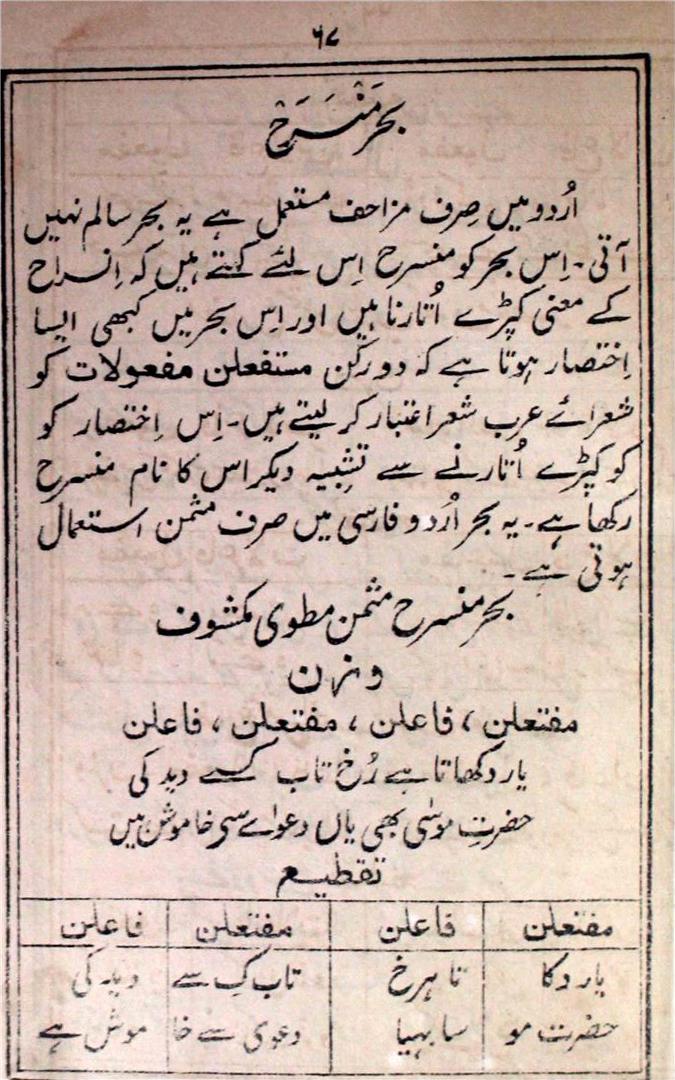 ۶۸
بحر مَنْسَرَح
اُردو میں صِرف مزاحف مستعمل ہے یہ بحر سالم نہیں
آتی۔ اِس بحر کو منسرح اِس لئے کہتے ہیں کہ اِنسراح
کے معنی کپڑے اُتارنا ہیں اور اِس بحر میں کبھی ایسا
اِختصار ہوتا ہے کہ دو رکن مستفعلن مفعولات کو
شعرائے عرب شعر اعتبار کر لیتے ہیں۔ اِس اِختصار کو
کو کپڑے اُتارنے سے تشبیہ دیکر اس کا نام منسرح
رکھا ہے۔ یہ بحر اُردو فارسی میں صرف مثمن استعمال
ہوتی ہے۔
بحر منسرح مثمن مطوی مکشوف
وزن
مفتعلن ، فاعلن ، مفتعلن ، فاعلن
یار دکھاتا ہے رُخ تاب کسے دید کی
حضرتِ موسٰی بھی یاں دعواے سی خاموش ہیں
تقطیع
مفتعلن فاعلن مفتعلن فاعلن
یار دکا تا ہرخ تاب کِ سے دید کی
حضرت مو سا بہیا دعوی سے خا موش ہے